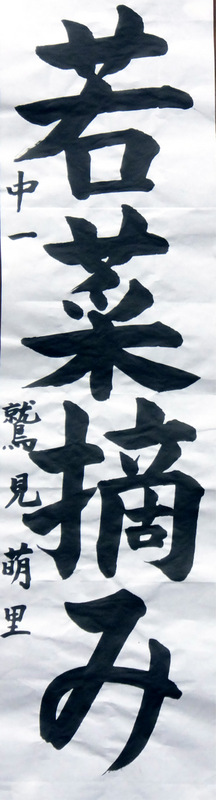 若菜摘み
中一 鷲見萌里